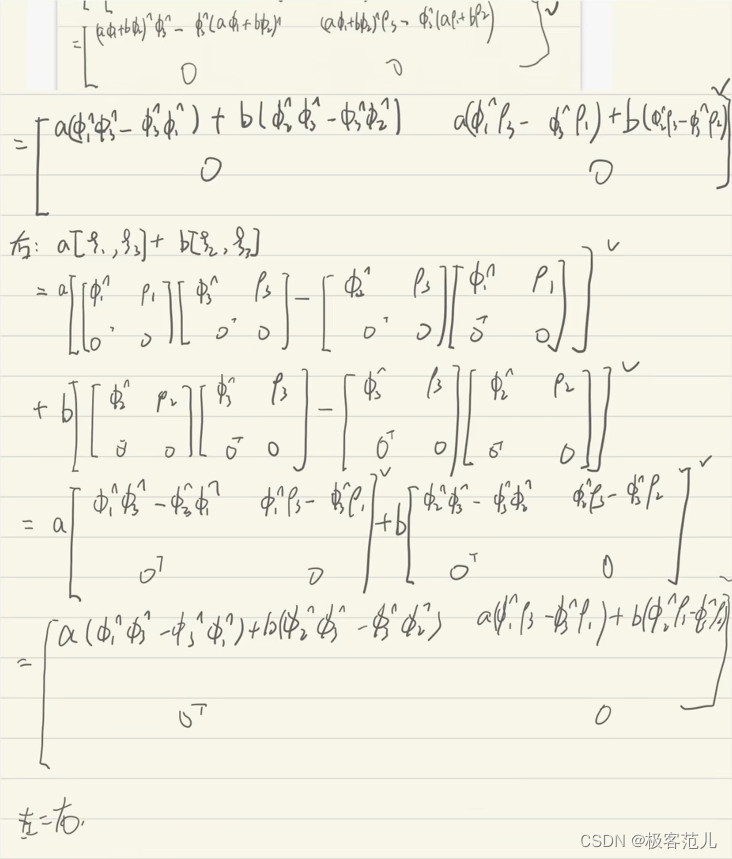 = [ (aϕ₁+bϕ₂)^ϕ₃^ - ϕ₃^(aϕ₁+bϕ₂)^ (aϕ₁+bϕ₂)^ρ₃ - ϕ₃^(aρ₁+bρ₂) ] √
0 0
= [ a(ϕ₁^ϕ₃^ - ϕ₃^ϕ₁^) + b(ϕ₂^ϕ₃^ - ϕ₃^ϕ₂^) a(ϕ₁^ρ₃ - ϕ₃^ρ₁) + b(ϕ₂^ρ₃ - ϕ₃^ρ₂) ] √
0 0
右: a[ξ₁,ξ₃] + b[ξ₂,ξ₃]
= a[ [ ϕ₁^ ρ₁ ] [ ϕ₃^ ρ₃ ] - [ ϕ₃^ ρ₃ ] [ ϕ₁^ ρ₁ ] ] √
0ᵀ 0 0ᵀ 0 0ᵀ 0 0ᵀ 0
+ b[ [ ϕ₂^ ρ₂ ] [ ϕ₃^ ρ₃ ] - [ ϕ₃^ ρ₃ ] [ ϕ₂^ ρ₂ ] ] √
0ᵀ 0 0ᵀ 0 0ᵀ 0 0ᵀ 0
= a[ ϕ₁^ϕ₃^ - ϕ₃^ϕ₁^ ϕ₁^ρ₃ - ϕ₃^ρ₁ ] √ + b[ ϕ₂^ϕ₃^ - ϕ₃^ϕ₂^ ϕ₂^ρ₃ - ϕ₃^ρ₂ ] √
0ᵀ 0 0ᵀ 0
= [ a(ϕ₁^ϕ₃^ - ϕ₃^ϕ₁^) + b(ϕ₂^ϕ₃^ - ϕ₃^ϕ₂^) a(ϕ₁^ρ₃ - ϕ₃^ρ₁) + b(ϕ₂^ρ₁ - ϕ₃^ρ₂) ]
0ᵀ 0
左=右.
CSDN @极客范儿